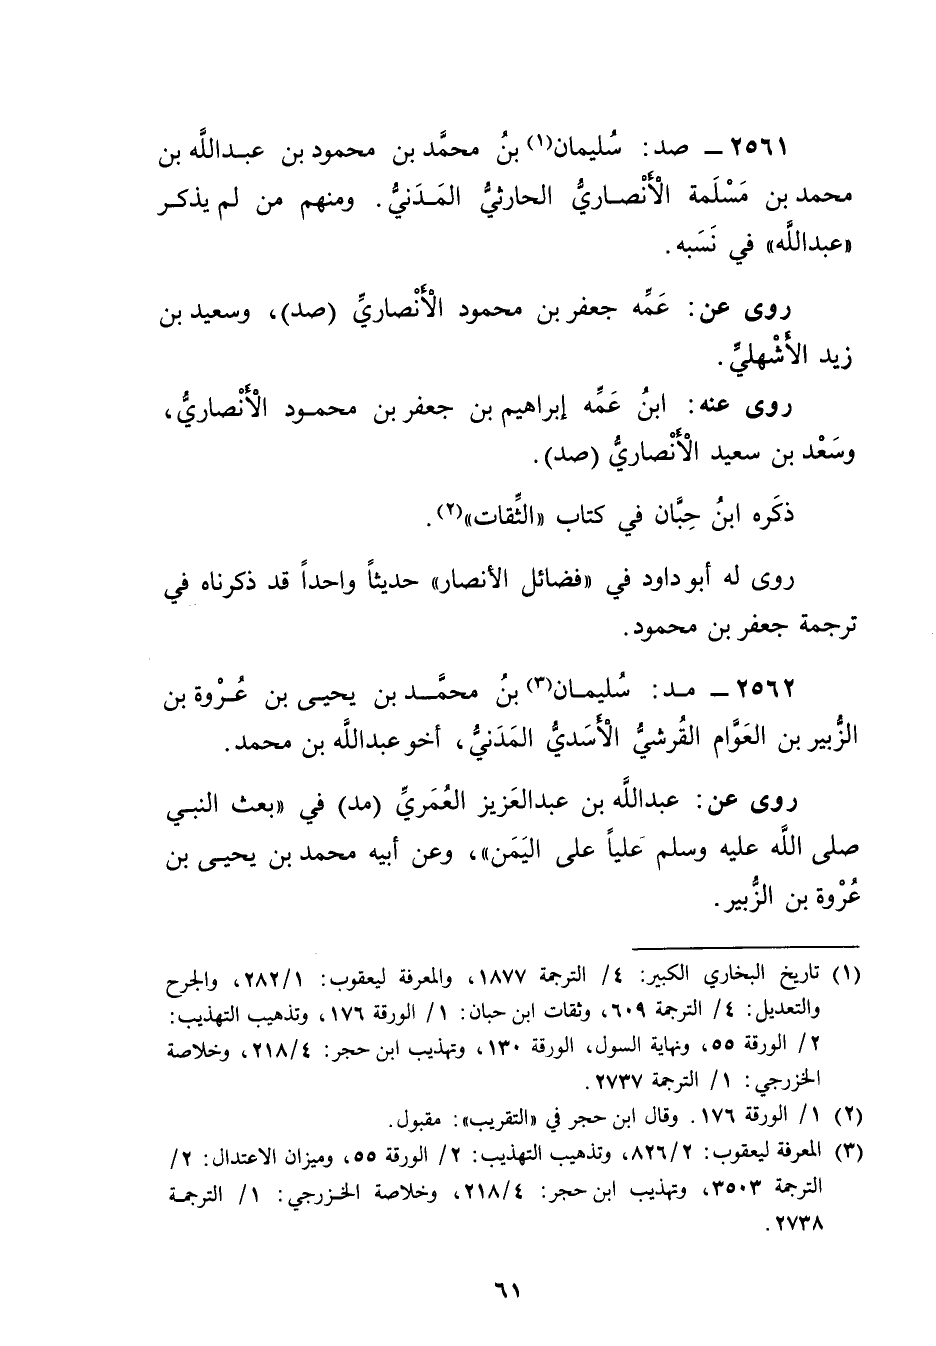 ٢٥٦١ – صد: سُليمان(١) بنُ محمَّد بن محمود بن عبدالله بن
محمد بن مَسْلَمة الْأَنْصاريُّ الحارثيُّ المَدَنيُّ. ومنهم من لم يذكر
«عبدالله» في نَسَبه.
روى عن: عَمِّه جعفر بن محمود الْأَنْصاريِّ (صد)، وسعيد بن
زيد الأَشْهليِّ.
روى عنه: ابنُ عَمِّه إبراهيم بن جعفر بن محمود الْأَنْصاريُّ،
وسَعْد بن سعيد الْأَنْصاريُّ (صد).
ذكَره ابنُ حِبَّان في كتاب «الثِّقات»(٢).
روى له أبو داود في «فضائل الأنصار» حديثاً واحداً قد ذكرناه في
ترجمة جعفر بن محمود.
٢٥٦٢ – مد: سُليمان(٣) بنُ محمَّد بن يحيى بن عُرْوة بن
الزُّبير بن العَوَّام القُرشيُّ الْأَسَديُّ المَدَنيُّ، أخو عبدالله بن محمد.
روى عن: عبدالله بن عبدالعَزيز العُمَريِّ (مد) في «بعث النبي
صلى الله عليه وسلم عَلياً على اليَمَن»، وعن أبيه محمد بن يحيى بن
عُرْوة بن الزُّبير.
(١) تاريخ البخاري الكبير: ٤/ الترجمة ١٨٧٧، والمعرفة ليعقوب: ٢٨٢/١، والجرح
والتعديل: ٤/ الترجمة ٦٠٩، وثقات ابن حبان: ١/ الورقة ١٧٦، وتذهيب التهذيب:
٢/ الورقة ٥٥، ونهاية السول، الورقة ١٣٠، وتهذيب ابن حجر: ٢١٨/٤، وخلاصة
الخزرجي: ١/ الترجمة ٢٧٣٧.
(٢) ١/ الورقة ١٧٦. وقال ابن حجر في «التقريب»: مقبول.
(٣) المعرفة ليعقوب: ٨٢٦/٢، وتذهيب التهذيب: ٢/ الورقة ٥٥، وميزان الاعتدال: ٢/
الترجمة ٣٥٠٣، وتهذيب ابن حجر: ٢١٨/٤، وخلاصة الخزرجي: ١/ الترجمة
٢٧٣٨.
٦١